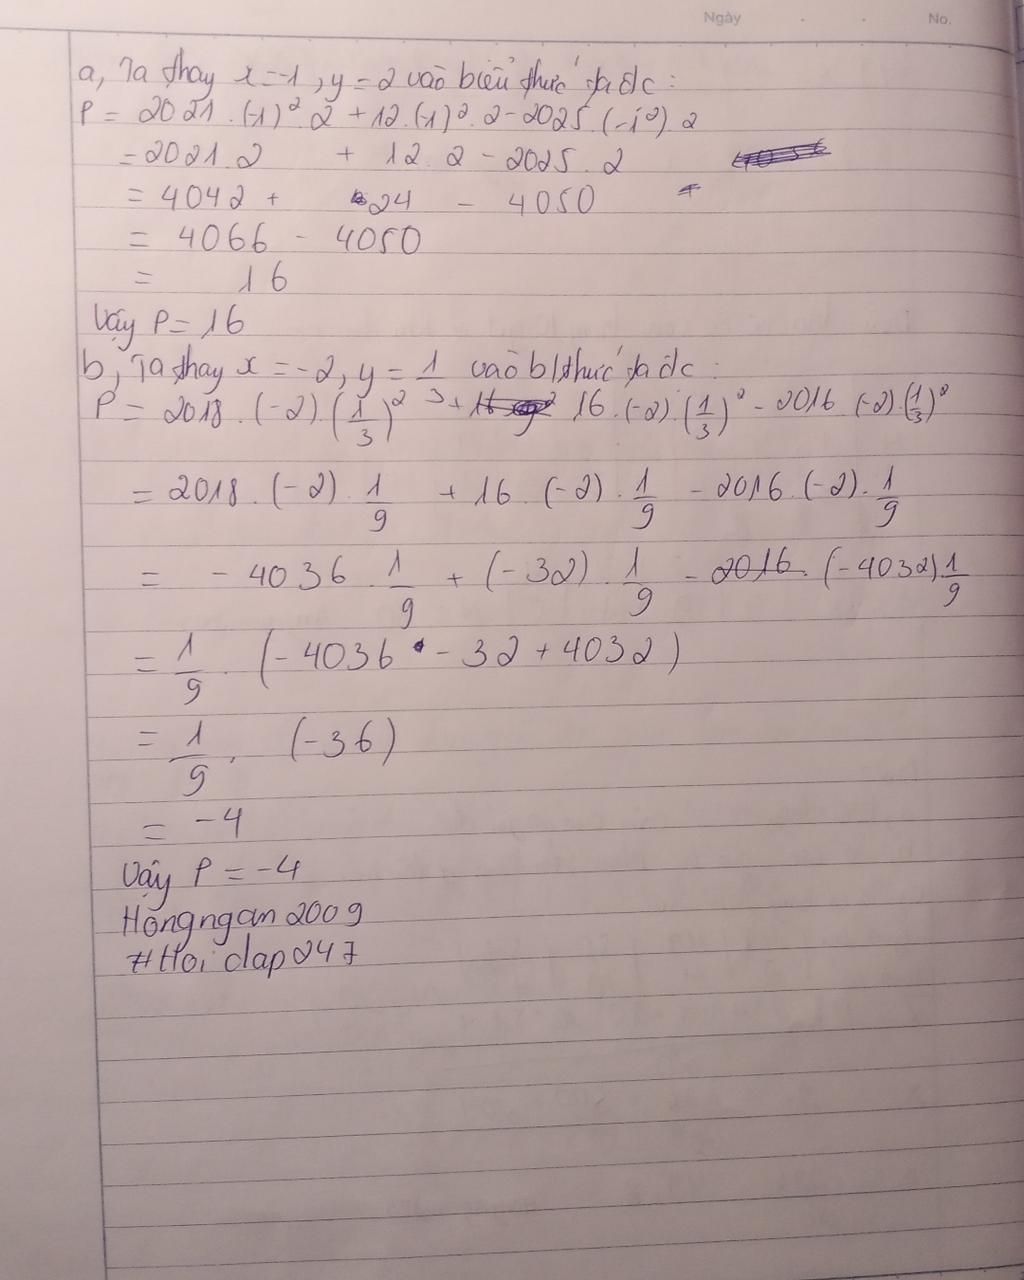 Ngày . . No.
a, Ta thay x = -1, y = 2 vào biểu thức ta đc:
P = 2021 . (-1)² . 2 + 12 . (-1)² . 2 - 2025 . (-1²) 2
= 2021 . 2 + 12 . 2 - 2025 . 2
= 4042 + 24 - 4050
= 4066 - 4050
= 16
Vậy P = 16
b, Ta thay x = -2, y = 1/3 vào b/thức ta đc:
P = 2018 . (-2) . (1/3)² + 16 . (-2) . (1/3)² - 2016 . (-2) . (1/3)²
= 2018 . (-2) . 1/9 + 16 . (-2) . 1/9 - 2016 . (-2) . 1/9
= -4036 . 1/9 + (-32) . 1/9 - (-4032) 1/9
= 1/9 . (-4036 - 32 + 4032)
= 1/9 . (-36)
= -4
Vậy P = -4
Hongngan2009
#Hoidap247